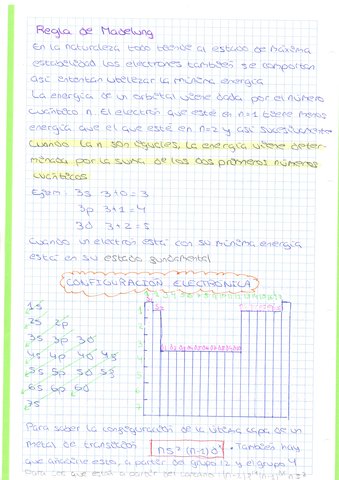 Regla de Madelung
En la naturaleza todo tiende al estado de máxima
estabilidad los electrones también se comportan
así: intentan utilizar la mínima energía
La energía de un orbital viene dada por el número
cuántico n. El electrón que esté en n=1 tiene menos
energía que el que esté en n=2 y así sucesivamente
Cuando la n son iguales, la energía viene deter-
minada por la suma de los dos primeros números
cuánticos
Ejem: 3s 3+0=3
3p 3+1=4
3d 3+2=5
Cuando un electrón está con su mínima energía
está en su estado fundamental
CONFIGURACIÓN ELECTRÓNICA
1s
2s 2p
3s 3p 3d
4s 4p 4d 4f
5s 5p 5d 5f
6s 6p 6d
7s
Para saber la configuración de la última capa de un
metal de transición ns² (n-1)d • También hay
que añadirle esto, a partir del grupo 12 y el grupo 4